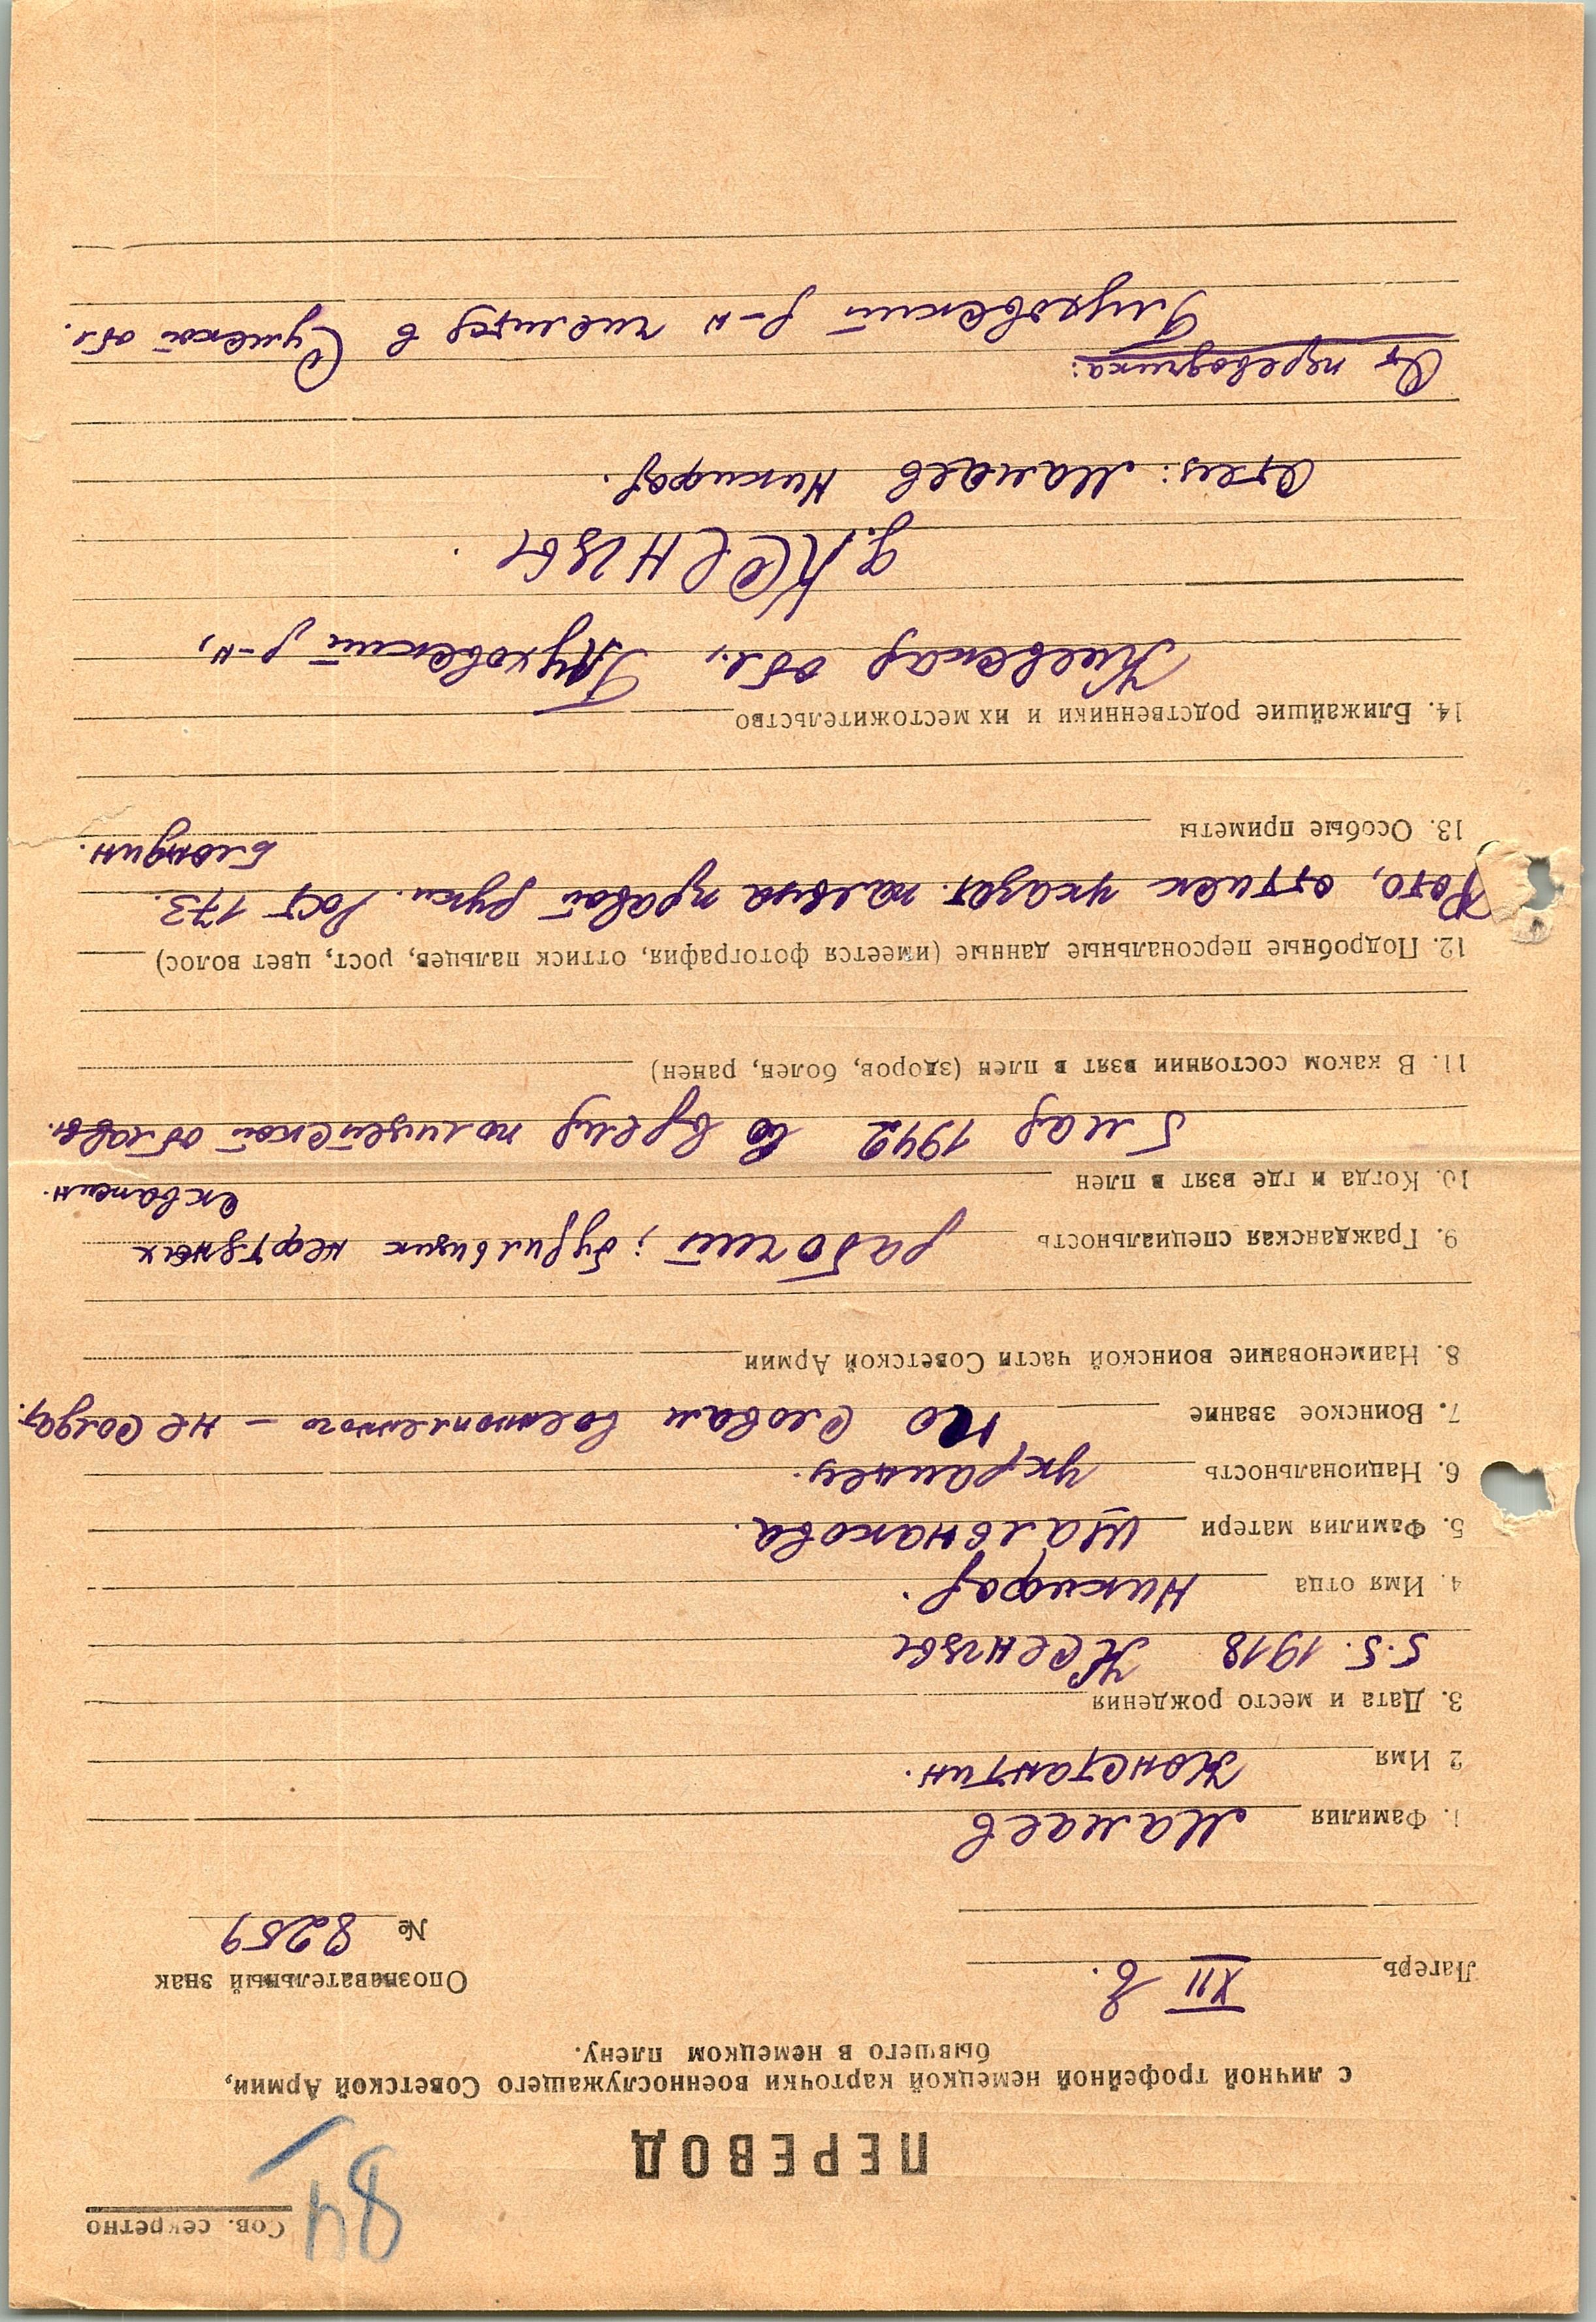 Сов. секретно
84
ПЕРЕВОД
с личной трофейной немецкой карточки военнослужащего Советской Армии,
бывшего в немецком плену.
Лагерь XII в. Опознавательный знак
№ 8259
1. Фамилия Мамаев
2 Имя Константин.
3. Дата и место рождения
5.5.1918 Ксензы
4. Имя отца Никифор.
5. Фамилия матери Шальнакова.
6. Национальность украинец.
7. Воинское звание по словам военнопленного – не солдат.
8. Наименование воинской части Советской Армии
9. Гражданская специальность рабочий; бурильщик нефтяных
скважин.
10. Когда и где взят в плен
5 мая 1942 во время полицейской облавы.
11. В каком состоянии взят в плен (здоров, болен, ранен)
12. Подробные персональные данные (имеется фотография, оттиск пальцев, рост, цвет волос)
Фото, оттиск указат. пальца правой руки. Рост 173.
Блондин.
13. Особые приметы
14. Ближайшие родственники и их местожительство
Киевская обл., Глуховский р-н,
д.
Отец: Мамаев Никифор.
От переводчика:
Глуховский р-н числится в Сумской обл.